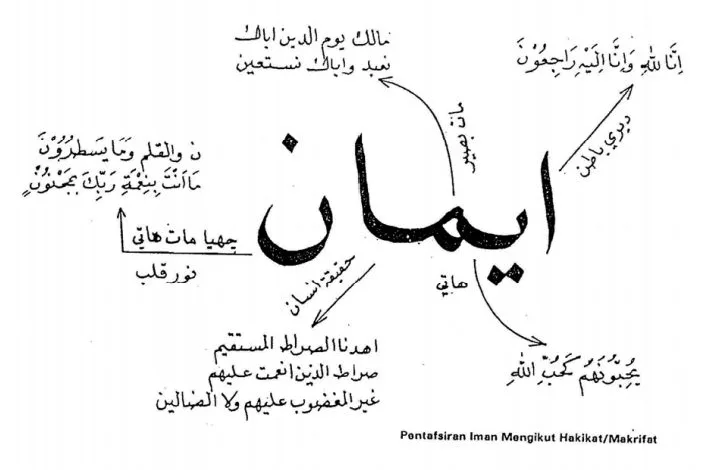 مالك يوم الدين اياك
نعبد واياك نستعين
اِنَّا لِلّٰهِ وَاِنَّا اِلَيْهِ رَاجِعُوْنَ
مات بصير
ديري باطن
ن والقلم وَمَا يَسطُرُوْنَ
مَا اَنْتَ بِنِعْمَةِ رَبِّكَ بِمَجْنُوْنٍ
ايمان
چهيا مات هاتي
نور قلب
حقيقة انسان
هاتي
اهدنا الصراط المستقيم
صراط الذين انعمت عليهم
غير المغضوب عليهم ولا الضالين
يُحِبُّوْنَهُمْ كَحُبِّ اللّٰهِ
Pentafsiran Iman Mengikut Hakikat/Makrifat